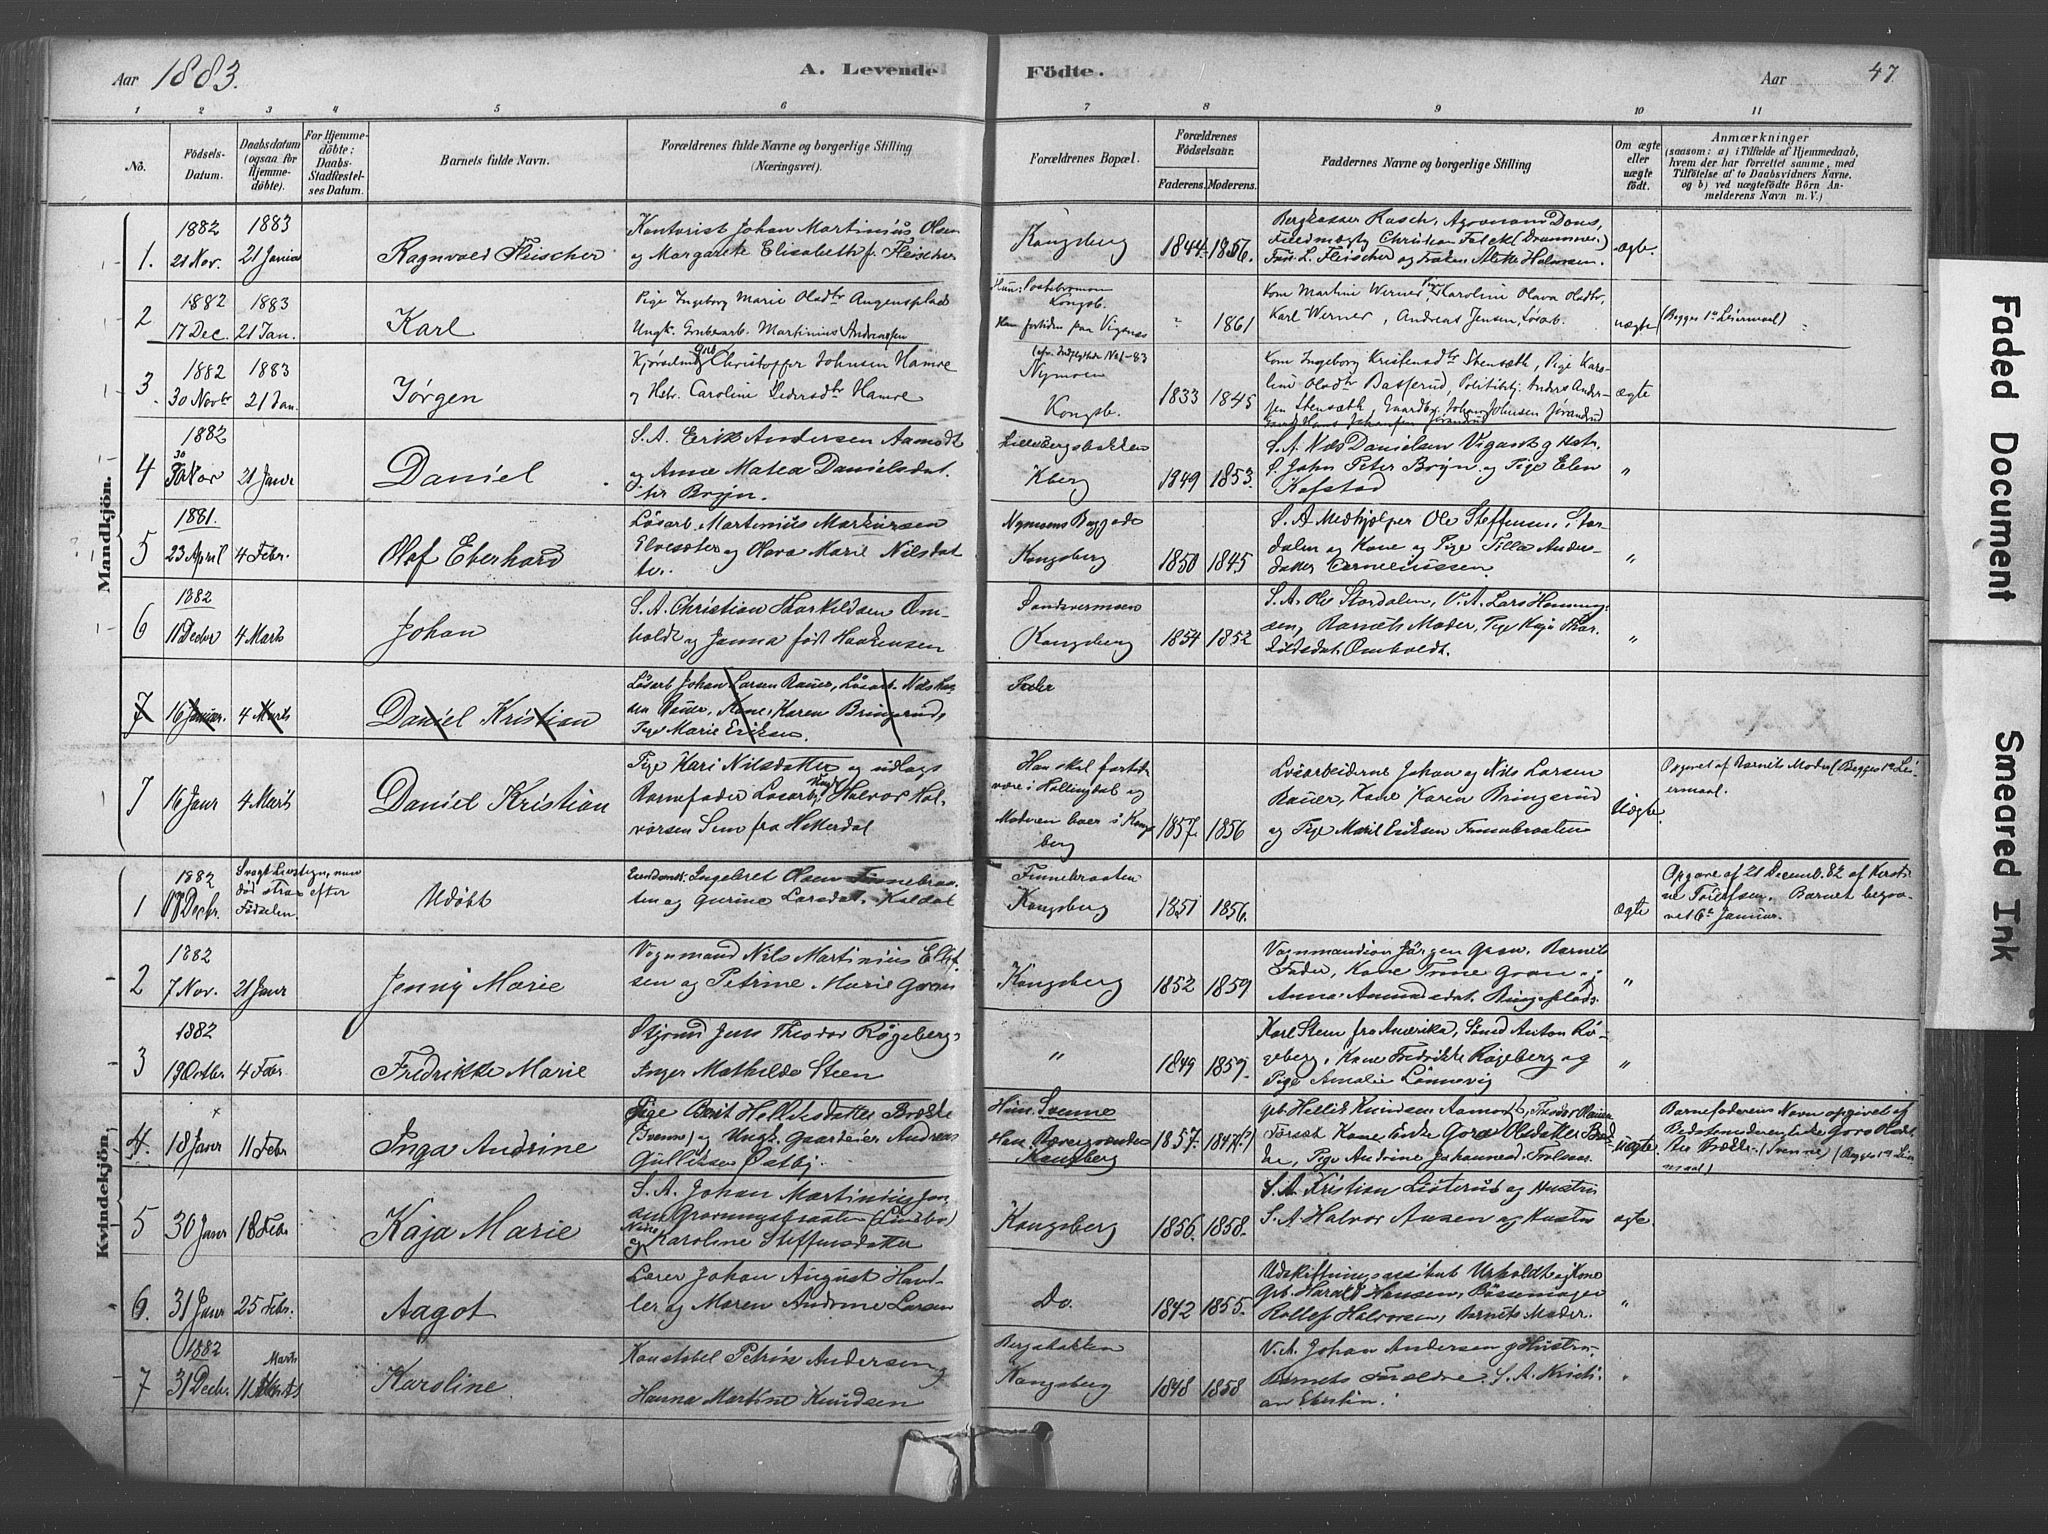 Aar 1883.
A. Levende Födte.
Aar 47
1 2 3 4 5 6 7 8 9 10 11
No.
Födsels-Datum.
Daabsdatum (ogsaa for Hjemmedöbte).
For Hjemmedöbte: Daabs-Stadfæstelses Datum.
Barnets fulde Navn.
Forældrenes fulde Navne og borgerlige Stilling
(Næringsvei).
Forældrenes Bopæl.
Forældrenes Födselsaar.
Faderens. Moderens.
Faddernes Navne og borgerlige Stilling
Om ægte eller uægte födt.
Anmærkninger
(saasom: a) i Tilfælde af Hjemmedaab,
hvem der har forrettet samme, med
Tilföielse af to Daabsvidners Navne,
og b) ved uægtefödte Börn An-
melderens Navn m. V.)
Mandkjön.
1. 1882 21 Nov. 1883 21 Ragnvald Fleischer
Kontorist Johan Martinius Olsen
og Margarete Elisabeth f. Fleischer
Kongsberg 1844. 1856.
Bergkasser Rasch, Dons,
Christian Falck (Drammen)
L. Fleischer og Frøken Halvorsen.
ægte.
2 1882 17 Dec. 1883 21 Jan. Karl
Pige Ingeborg Marie Olsdtr
Ungk. Grubearb. Martinius Andreassen
Kongsb.
1861
Kone Martine Werner, Pige Karoline Olava Olsdtr,
Karl Werner, Andreas Jensen, Løsarb.
uægte (Begges 1ste Leiermaal)
3. 1882 30 Novbr 1883 21 Jan. Jørgen
Christoffer Johnsen Hamre
og Hstr. Caroline Pedersdtr Hamre
Nymoen
Kongsb. 1833 1845
Kone Ingeborg Kristensdtr Stensæth, Pige Karo-
line Olsdtr Basserud, Politibtj. Anders Ander-
sen Stensæth, Gaardbr. Johan Johnsen
ægte
4 1882 30 Nov 21 Janr Daniel
S.A. Erik Andersen Aamodt
og Anne Matea Danielsdat-
ter Bryn.
Kberg 1849 1853.
S.A. Nils Danielsen og Hstr.
S. John Peter Bryn og Pige Elen
Kofstad
"
5 1881. 23 April 4 Febr. Olaf Eberhard
Løsarb. Martinius Markussen
Elvesæter og Olava Marie Nilsdat-
ter.
Nymoens Baggade
Kongsberg 1850 1845
S.A Medhjelper Ole Steffensen Stor-
dalen og Kone og Pige Tilla Anders-
datter Corneliussen
"
6 1882 11 Decbr 4 Marts Johan
S.A. Christian Thorkildsen Om-
holdt og Janna født Haakensen
Kongsberg 1854 1852
S.A. Ole Stordalen, V.A. Lars Henning-
sen, Barnets Moder, Pige Kaja Thor-
kildsdat. Omholdt.
"
7 16 Januar. 4 Marts Daniel Kristian
Løsarb Johan Larsen Rauer, Løsarb. Nils Lar-
sen Rauer, Kone Karen Bringerud,
Pige Marie Eriksen.
7 16 Janr 4 Marts Daniel Kristian
Pige Kari Nilsdatter og udlagt
Barnefader Løsarb. Ungk. Halvor Hal-
vorsen Sem fra Hitterdal
Han skal fortid.
være i Hallingdal og
Moderen boer i Kongs-
berg
1857. 1856
Løsarbeiderne Johan og Nils Larsen
Rauer, Kone Karen Bringerud
og Pige Marie Eriksen Finnebraaten
Uægte.
Opgivet af Barnets Moder (Begges 1ste Lei-
ermaal.
Kvindekjön.
1 1882 Decbr.
Svagt Livstegn, men
død strax efter
Fødselen.
Udøbt
Ingebret Olsen Finnebraa-
ten og Gurine Larsdat. Koldal
Finnebraaten
Kongsberg 1851 1856.
ægte
Opgave af 21 Decemb. 82 af Kirsti-
ne Barnet begra-
vet 6te Januar.
2 1882 7 Nov. 21 Janr Jenny Marie
Vognmand Nils Martinius Ellef-
sen og Petrine Marie Gran
Kongsberg 1852 1859
Vognmand Jørgen Gran, Barnets
Fader, Kone Trine Gran og
Anna Amundsdat.
"
3 1882 19 Octbr. 4 Febr Fredrikke Marie
Jens Theodor Røgeberg,
Inger Mathilde Steen
" 1849 1859.
Karl Steen fra Amerika, Smed Anton Rø-
geberg, Kone Fredrikke Røgeberg og
Pige Amalie Lønnevig
"
4. 18 Janr 11 Febr Inga Andrine
Pige Berit Helliksdatter Brække
(Svenne) og Ungk. Gaardeier Andreas
Gulliksen Østby.
Hun: Svenne
Han
Kongsberg
1857. 1847(?)
Gbr. Hellik Knudsen Aamot,
Kone Enke Goro Olsdatter
Pige Andrine Johannesd.
uægte
Barnefaderens Navn opgivet af
Bedstemoderen Enke Goro Olsdat-
ter Brække (Svenne) (Begges 1ste Lei-
ermaal)
5 30 Janr 18 Febr. Kaja Marie
S.A. Johan Martinius
(Lindbo)
og Karoline Steffensdatter
Kongsberg 1856. 1858.
S.A. Kristian og Hustru
S.A Halvor Aasen og Hustru
ægte.
6. 31 Janr 25 Febr. Aagot
Lærer Johan August Hand-
ler og Maren Andrine Larsen
Do. 1842 1855.
Udskiftningsassistent Urholdt og Kone
Gbr. Harald Hansen, Bøssemager
Rollef Halvorsen, Barnets Moder.
"
7 1882 31 Decbr. 11 Marts Karoline.
Konstabel Petrik Andersen
Hanna Martine Knudsen
Bergsbakken
Kongsberg 1848 1858
V.A. Johan Andersen og Hustru
Barnets Forældre. S.A. Kristi-
an
"
Faded Document
Smeared Ink